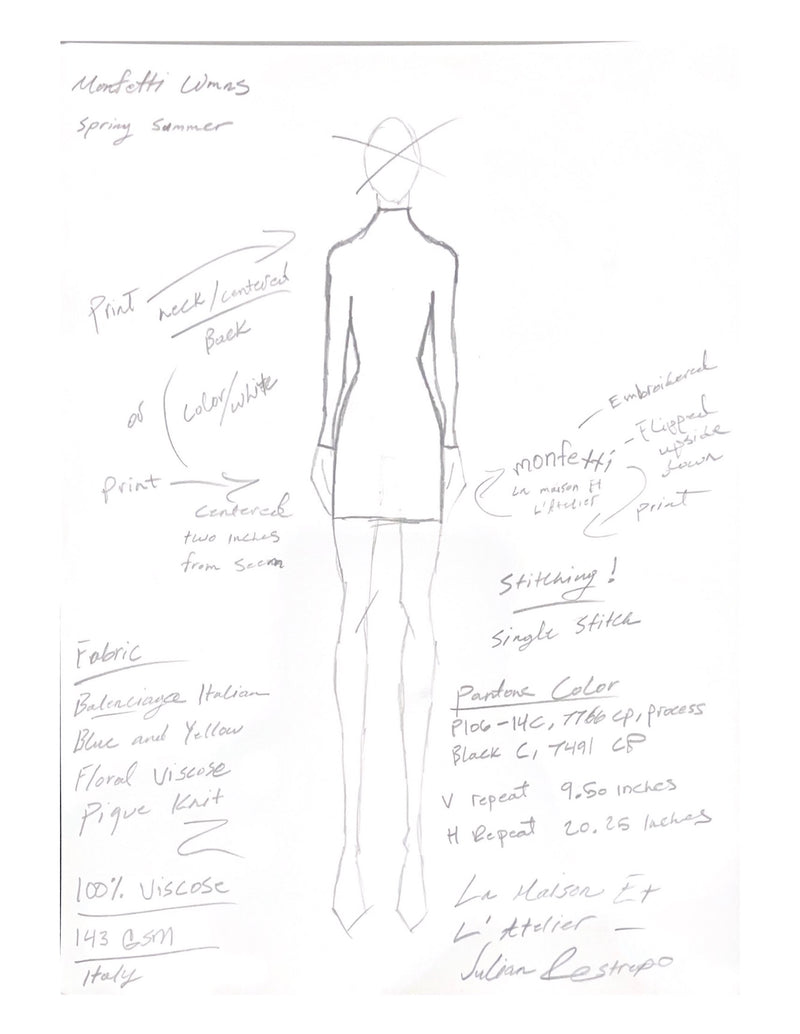 Monfetti Wmns
Spring Summer
Print neck/centered
Back
or (color/white
Print
centered
two inches
from seam
Embroidered
monfetti
La maison Et
L'Atelier
Flipped
upside
down
print
Stitching!
Single Stitch
Fabric
Balenciaga Italian
Blue and Yellow
Floral Viscose
Pique Knit
100% Viscose
143 GSM
Italy
Pantone Color
P106-14C, 7766 CP, process
Black C, 7491 CP
V repeat 9.50 inches
H Repeat 20.25 Inches
La Maison Et
L'Atelier —
Julian Restrepo